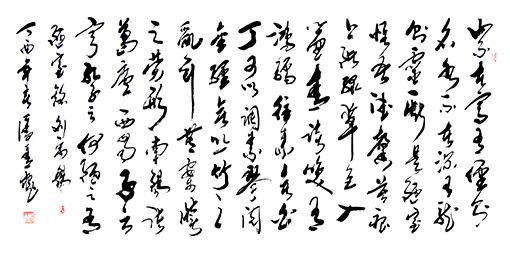 山不在高有仙則
名水不在深有龍
則靈斯是陋室
惟吾德馨苔痕
上階綠草色入
簾青談笑有
鴻儒往來無白
丁可以調素琴閱
金經無絲竹之
亂耳無案牘
之勞形南陽諸
葛廬西蜀子云
亭孔子云何陋之有
陋室銘劉禹錫
丁酉年春